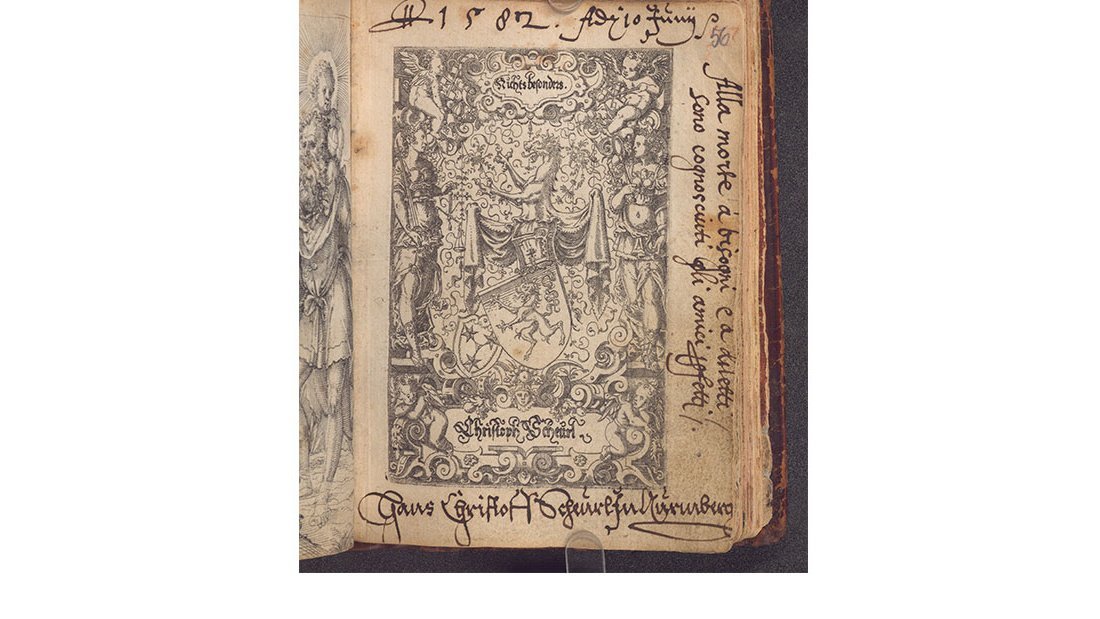 1582. Ady 10 Junij
56
Nichts besonders.
Alla morte á bisogni e a diletti
sono cognosciuti gli amici pfetti.
Christoph Scheurl.
Hanns Christoff Scheurl Jn Nürmberg